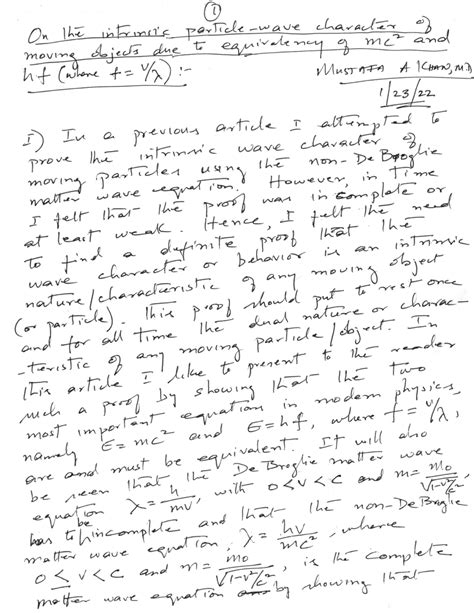 ①
On the intrinsic particle-wave character of
moving objects due to equivalency of mc² and
hf (where f = v/λ) :-
MUSTAFA A KHAN, M.D.
1/23/22
I) In a previous article I attempted to
prove the intrinsic wave character of
moving particles using the non-De Broglie
matter wave equation. However, in time
I felt that the proof was incomplete or
at least weak. Hence, I felt the need
to find a definite proof that the
wave character or behavior is an intrinsic
nature/characteristic of any moving object
(or particle). This proof should put to rest once
and for all time the dual nature or charac-
-teristic of any moving particle/object. In
this article I like to present to the reader
such a proof by showing that the two
most important equation in modern physics,
namely E=mc² and E=hf, where f = v/λ,
are and must be equivalent. It will also
be seen that the De Broglie matter wave
equation λ = h/mv, with 0<v<c and m = m₀/√1-v²/c²,
has to be incomplete and that the non-De Broglie
matter wave equation, λ = hv/mc², where
0 ≤ v < c and m = m₀/√1-v²/c², is the complete
matter wave equation by showing that